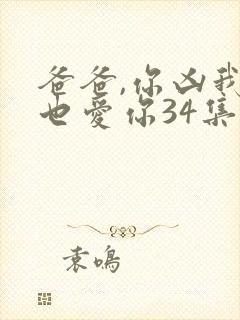 爸爸,你凶我
也爱你34集
袁鸣